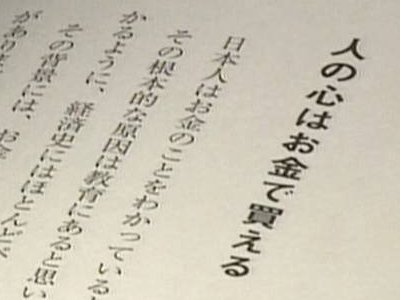 人の心はお金で買える
日本人はお金のことをわかっている
その根本的な原因は教育にあると思い
かるように、経済史にはほとんど
その背景には、お
がありま